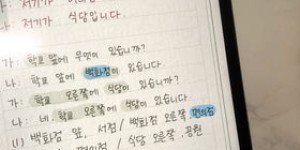 저기가 식당입니다.
가: 학교 앞에 무엇이 있습니까?
나: 학교 앞에 백화점이 있습니다
가: 학교 오른쪽에 식당이 있습니까?
나: 네. 학교 오른쪽에 식당이 있습니다.
(1) 백화점 앞, 서점 / 백화점 오른쪽 편의점
편의점 / 식당 오른쪽, 공원